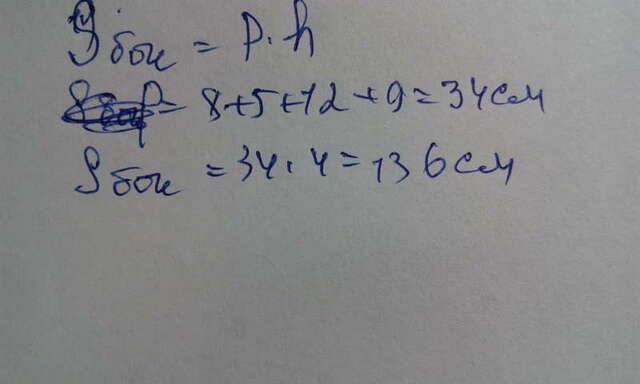 Sбок = P·h
P = 8+5+12+9=34см
Sбок = 34·4=136см